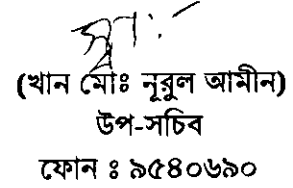 স্বাঃ-
(খান মোঃ নূরুল আমীন)
উপ-সচিব
ফোন ঃ ৯৫৪০৬৯০